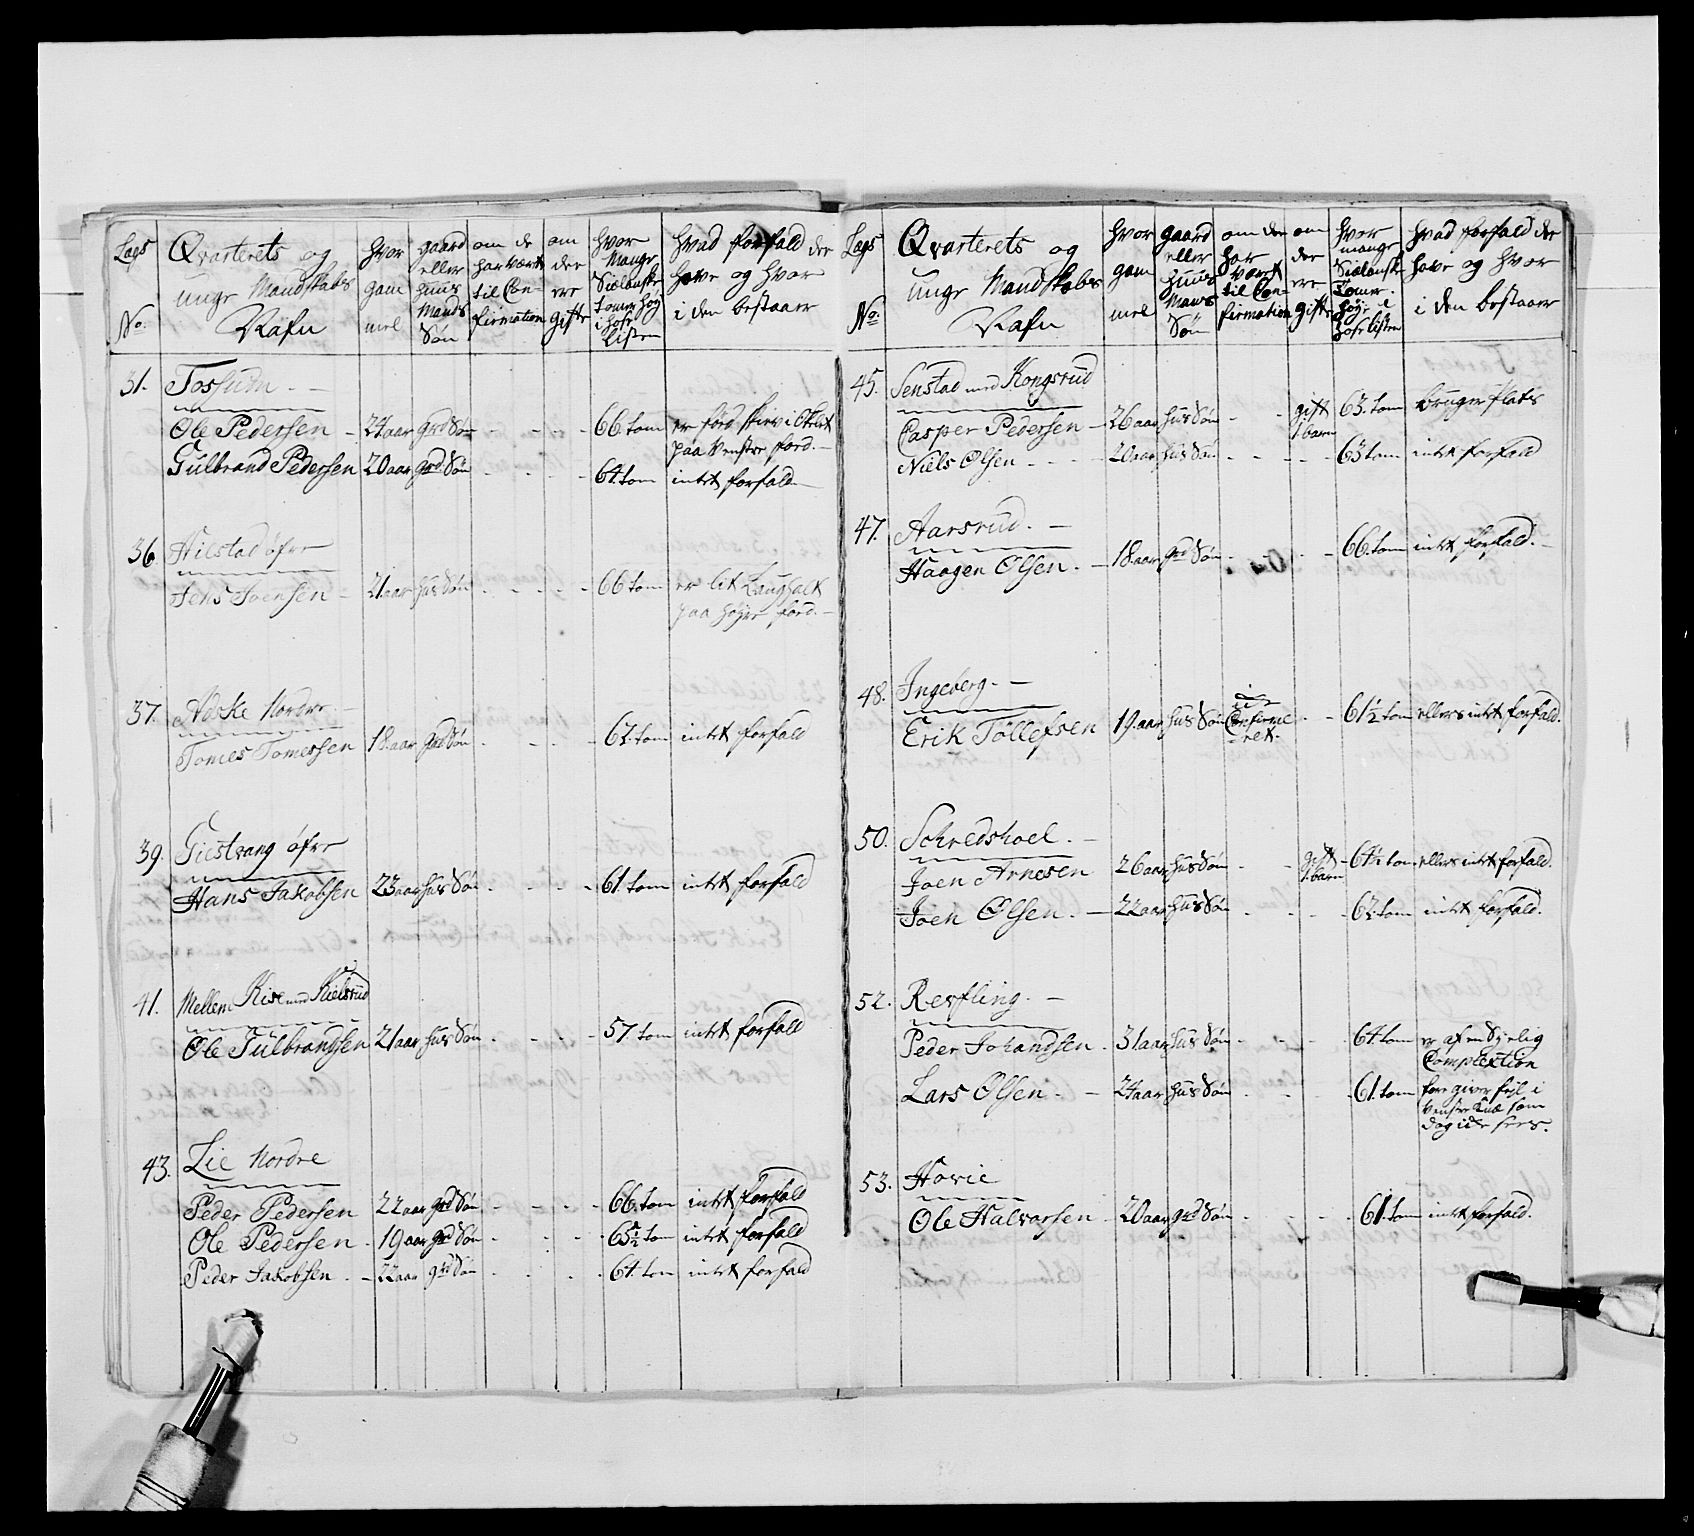 Legs No:
Qvarterets og unge Mandskabs Nafn
hvor gammel
gaard eller huus Mands Søn
om de har vært til Confirmation
om de ere gifte
hvor Mange Siælanske tomer høy i hose Listen
hvad forfald de have og hvor i den bestaar
31. Tossum. -
Ole Pedersen - 24 aar grd Søn - - - - 66 tom
paa Venstre ford. -
Gulbrand Pedersen 20 aar grd Søn - - - - 64. tom intet forfald
36 Hilstad øfre
Jens Joensen - 21 aar hus Søn - - - - 66 tom er lit Laughalt
paa højre ford. -
37. Adske Nordre. -
Tomes Tomessen 18. aar grd Søn - - - - 62. tom intet forfald
39. Giestvang øfre
Hans Jakobsen 23 aar hus Søn - - - - 61. tom intet forfald
41. Mellem Rise med Kielsrud
Ole Gulbrandsen 21 aar hus Søn - - - - 57. tom intet forfald
43. Lie Nordre
Peder Pedersen 22 aar grd Søn - - - - 66. tom intet forfald
Ole Pedersen - 19 aar grd Søn - - - - 65½ tom intet forfald
Peder Jakobsen - 22 aar grd Søn - - - - 64. tom intet forfald
Legs No:
Qvarterets og unge Mandskabs Nafn
hvor gammel
gaard eller huus Mans Søn
om de har været til Confirmation
om de ere gifte
hvor mange Siælanske Tomer høye i hose listen
hvad forfald de have og hvor i den bestaar
45. Senstad med Kongsrud
Casper Pedersen - 26 aar hus Søn - - gift 1 barn 63. tom bruger Plats
Niels Olsen - - - 20 aar hus Søn - - - - 63 tom intet forfald
47. Aarsrud. -
Haagen Olsen. - 18. aar grd Søn - - - - 66. tom intet forfald. -
48. Ingeberg. -
Erik Tollefsen 19. aar hus Søn Conferme
ret. - - 61½ tom ellers intet forfald.
50. Schredshoel. -
Joen Arnesen 26 aar hus Søn - - gift 1. barn 64½ tom ellers intet forfald.
Joen Olsen. - 22 aar hus Søn - - - - 62. tom intet forfald.
52. Refling. -
Peder Johandsen. 31 aar hus Søn - - - - 64. tom er af en Syelig
Complextion
Lars Olsen. - 24 aar hus Søn - - - - 61 tom foregiver fejl i
Venstre Knæ som
dog icke sees.
53. Hovie
Ole Halvorsen. 20 aar grd Søn - - - - 61. tom intet forfald.